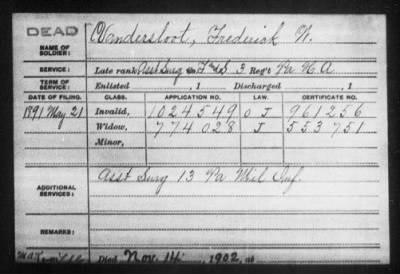 DEAD
NAME OF SOLDIER: Vandersloot, Frederick W.
SERVICE: Late rank, Asst Surg F and S 3 Reg't Pa H A
TERM OF SERVICE: Enlisted , 1 Discharged , 1
DATE OF FILING. CLASS. APPLICATION NO. LAW. CERTIFICATE NO.
1891 May 21 Invalid, 1024549 O J 961256
Widow, 774028 J 553751
Minor,
ADDITIONAL SERVICES: Asst Surg 13 Pa Mil Inf
REMARKS:
Died Nov. 14, 1902, at